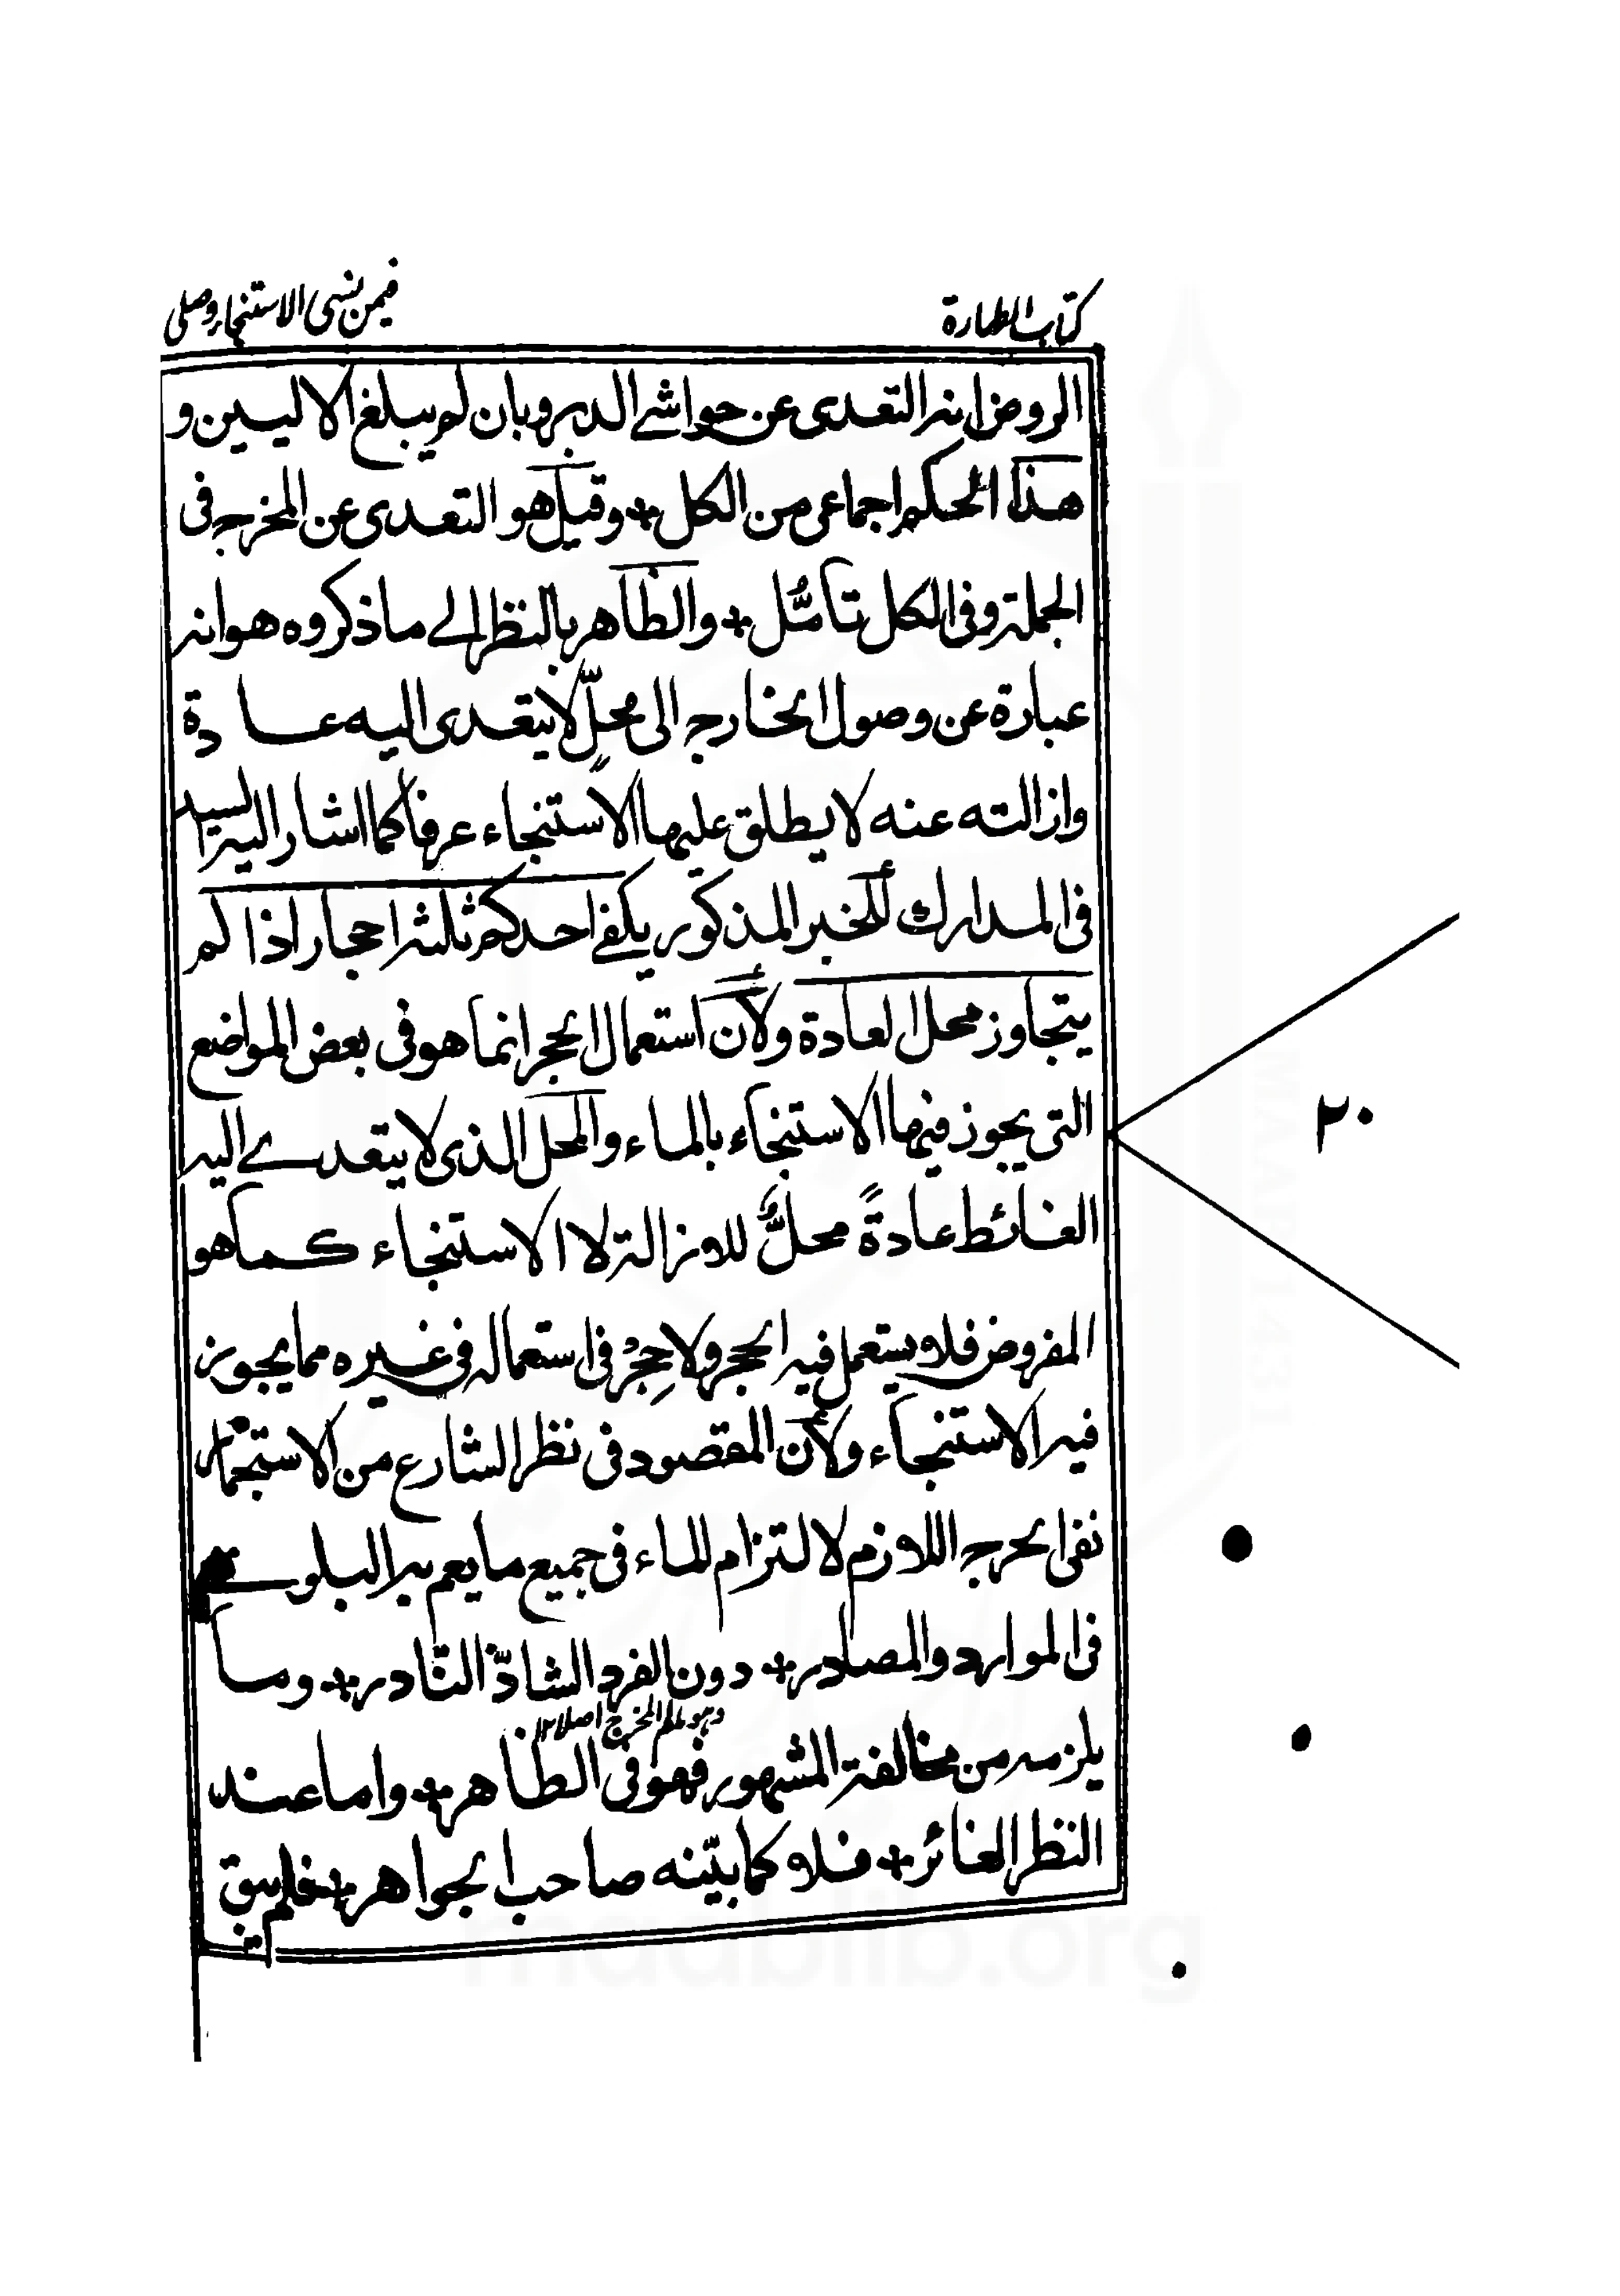 كتاب الطهارة
فيمن نسى الاستنجاء وصلى
الروض انه التعدى عن حواشے الدبر وبان لم يبلغ الاليين و
هذا الحكم اجماعى من الكل + وقيل هو التعدى عن المخرج فى
الجملة وفى الكل تأمّل + والظاهر بالنظر الے ما ذكروه هو انه
عبارة عن وصول الخارج الى محلٍّ لا يتعدى اليه عادة
وازالته عنه لا يطلق عليها الاستنجاء عرفا كما اشار اليه السيد
فى المدارك للخبر المذكور يكفے احدكم ثلثه احجار اذا لم
يتجاوز محل العادة ولأن استعمال الحجر انما هو فى بعض المواضع
التى يجوز فيها الاستنجاء بالماء والمحل الذى لا يتعدے اليه
الغائط عادةً محلٌّ للازالة لا الاستنجاء كما هو
المفروض فلا يستعمل فيه الحجر ولا حِجرٌ فى استعماله فى غيره مما يجوز
فيه الاستنجاء ولأن المقصود فى نظر الشارع من الاستجمار
نفى الحرج اللازم لالتزام الماء فى جميع ما يعم به البلوے
فى الموارد والمصادر + دون الفرد الشاذّ النّادر + وما
وهو لم المخرج اصلا ١٢
يلزمه من مخالفة المشهور فهو فى الظاهر + واما عند
النظر الغائر + فلا كما بيّنه صاحب الجواهر + فلم يبق
٢٠
madblib.org
MAAB 1431